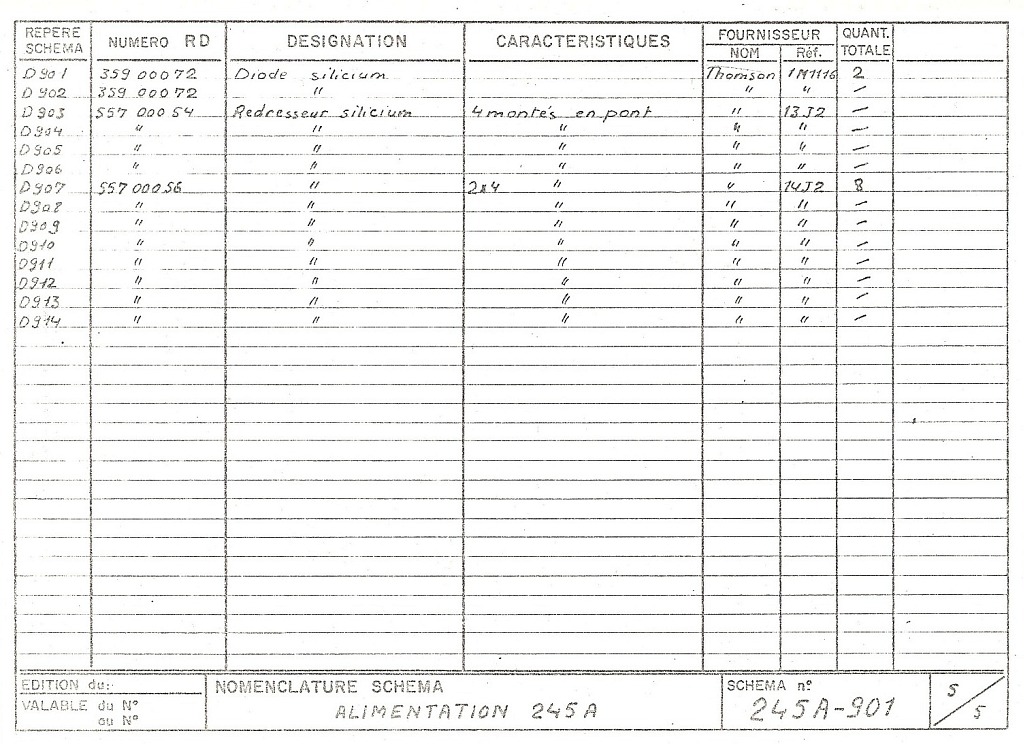 REPERE SCHEMA NUMERO RD DESIGNATION CARACTERISTIQUES FOURNISSEUR NOM Réf. QUANT. TOTALE
D901 359 000 72 Diode silicium Thomson 1N1116 2
D902 359 000 72 " " " –
D903 557 000 54 Redresseur silicium 4 montés en pont " 13J2 –
D904 " " " " " –
D905 " " " " " –
D906 " " " " –
D907 557 000 56 " 2x4 " " 14J2 8
D908 " " " " " –
D909 " " " " " –
D910 " " " " " –
D911 " " " " " –
D912 " " " " " –
D913 " " " " " –
D914 " " " " " –
EDITION du:
VALABLE du N°
ou N°
NOMENCLATURE SCHEMA
ALIMENTATION 245A
SCHEMA n°
245A-901
5/5